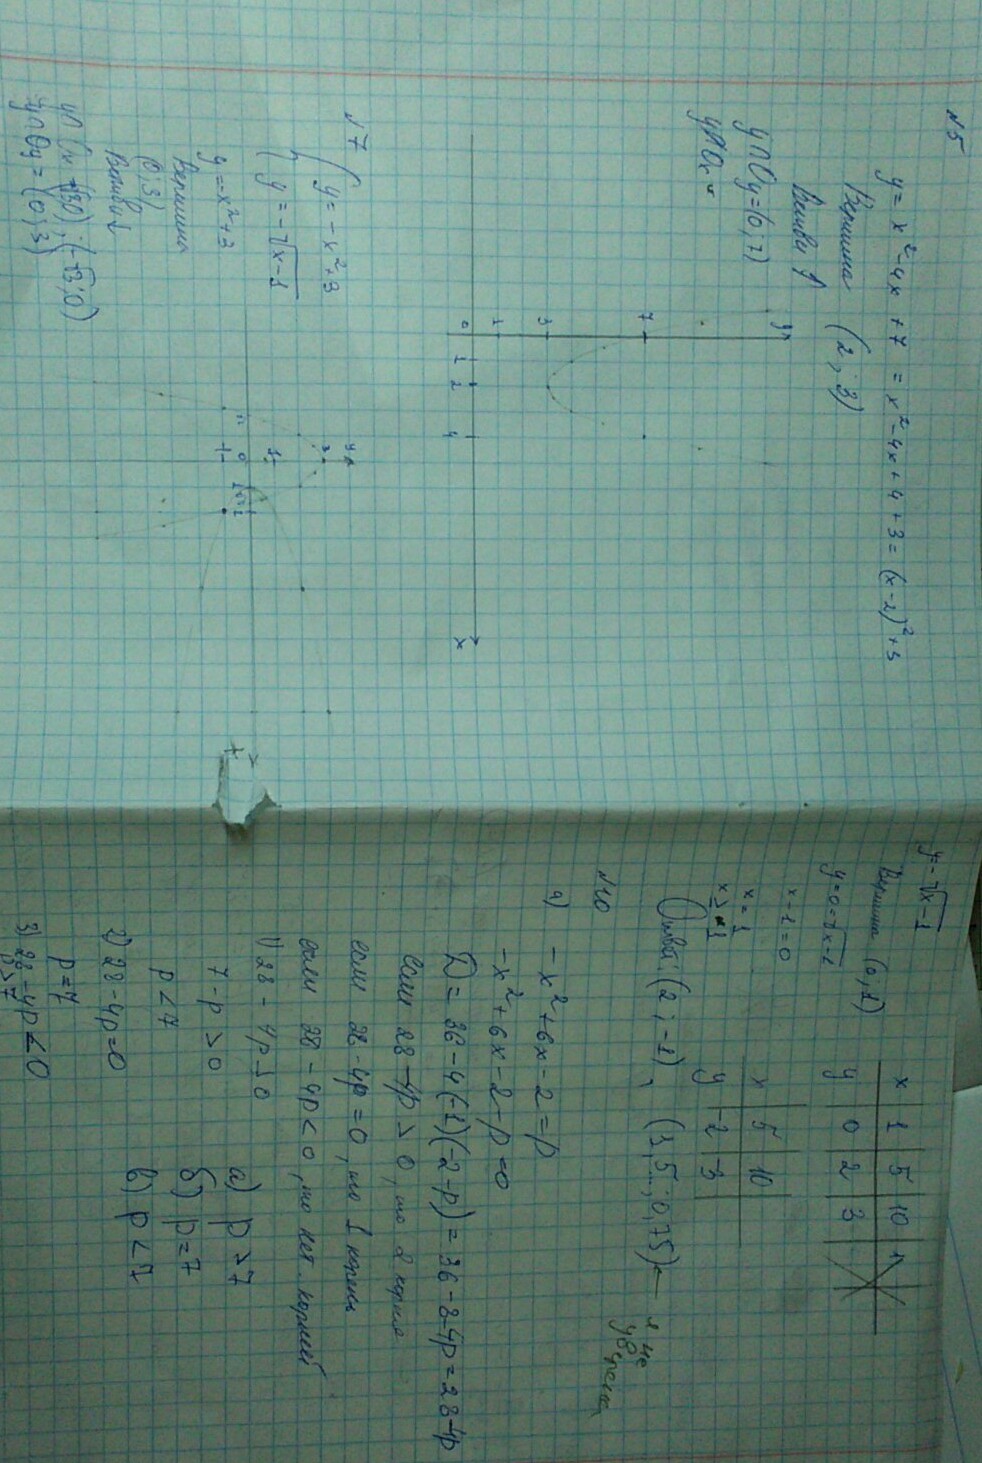 №5
y = x² - 4x + 7 = x² - 4x + 4 + 3 = (x-2)² + 3
Вершина (2; 3)
Ветви ↑
y∩Oy = (0; 7)
y∩Ox =
y
7
3
1
0
1
2
4
x
№7
y = -x²+3
y = -√x-1
y = -x²+3
Вершина
(0; 3)
Ветви ↓
y∩Oy = (0; 3)
y
3
1
0
-1
1
2
x
y = -√x-1
Вершина (0; 1)
y=0=√x-1
x-1=0
x = 1
x ≥ 1
x 1 5 10
y 0 2 3
x 5 10
y -2 -3
Ответ: (2; -1), (1,5...; 0,75) ← я не уверена
№10
а) -x² + 6x - 2 = p
-x² + 6x - 2 - p = 0
D = 36 - 4(-1)(-2-p) = 36 - 8 - 4p = 28 - 4p
если 28 - 4p > 0, то 2 корня
если 28 - 4p = 0, то 1 корень
если 28 - 4p < 0, то нет корней
1) 28 - 4p > 0
7 - p > 0
p < 7
2) 28 - 4p = 0
p = 7
3) 28 - 4p < 0
p > 7
а) p > 7
б) p = 7
в) p < 7